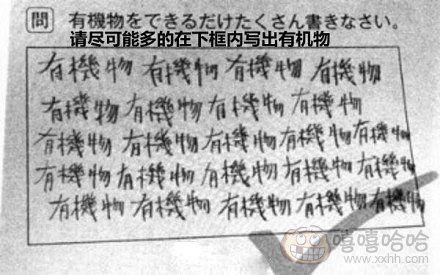 問 有機物をできるだけたくさん書きなさい。
请尽可能多的在下框内写出有机物
有機物 有機物 有機物 有機物
有機物 有機物 有機物 有機物
有機物 有機物 有機物 有機物 有機物
有機物 有機物 有機物 有機物 有機物
有機物 有機物 有機物 有機物 有機物
嘻嘻哈哈
www.xxhh.com